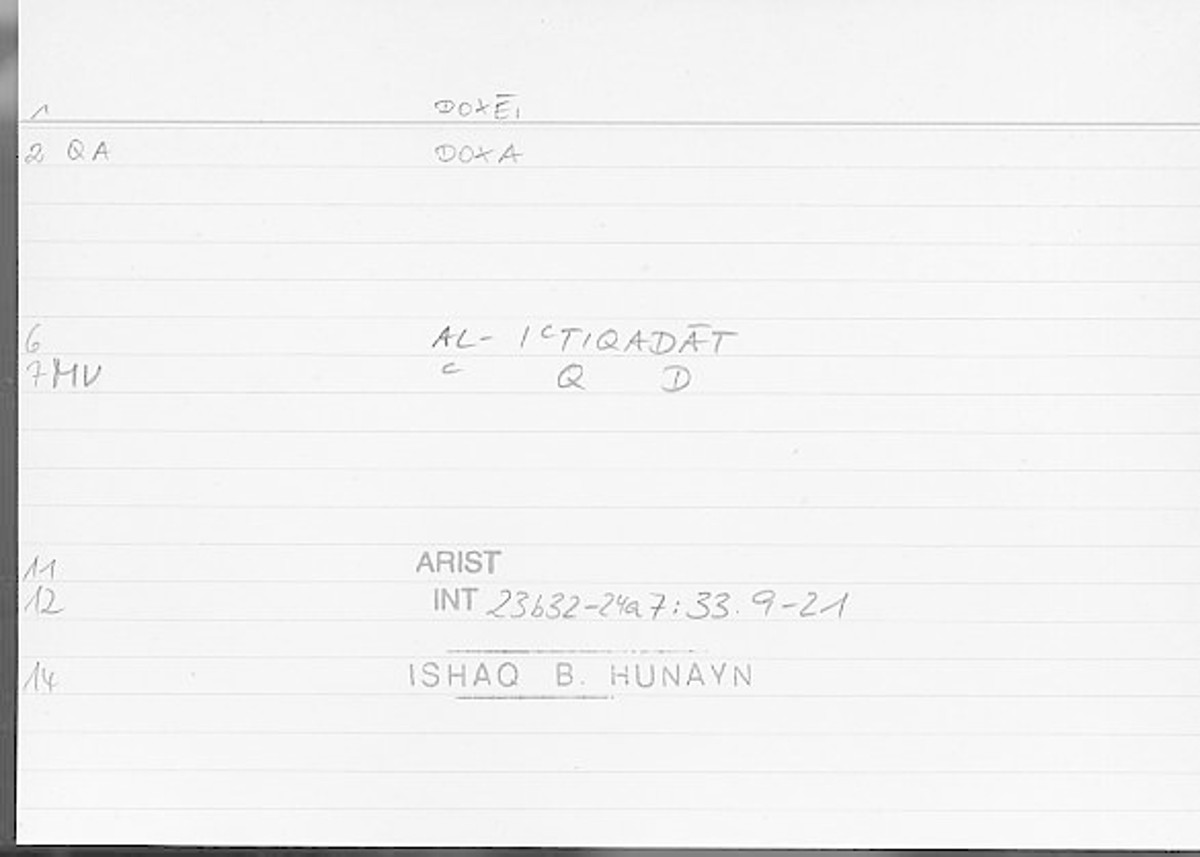 1 DOXĒI
2 QA DOXA
6 AL- IᶜTIQADĀT
7 MV ᶜ Q D
11 ARIST
12 INT 23b32-24a7:33.9-21
14 ISHAQ B. HUNAYN